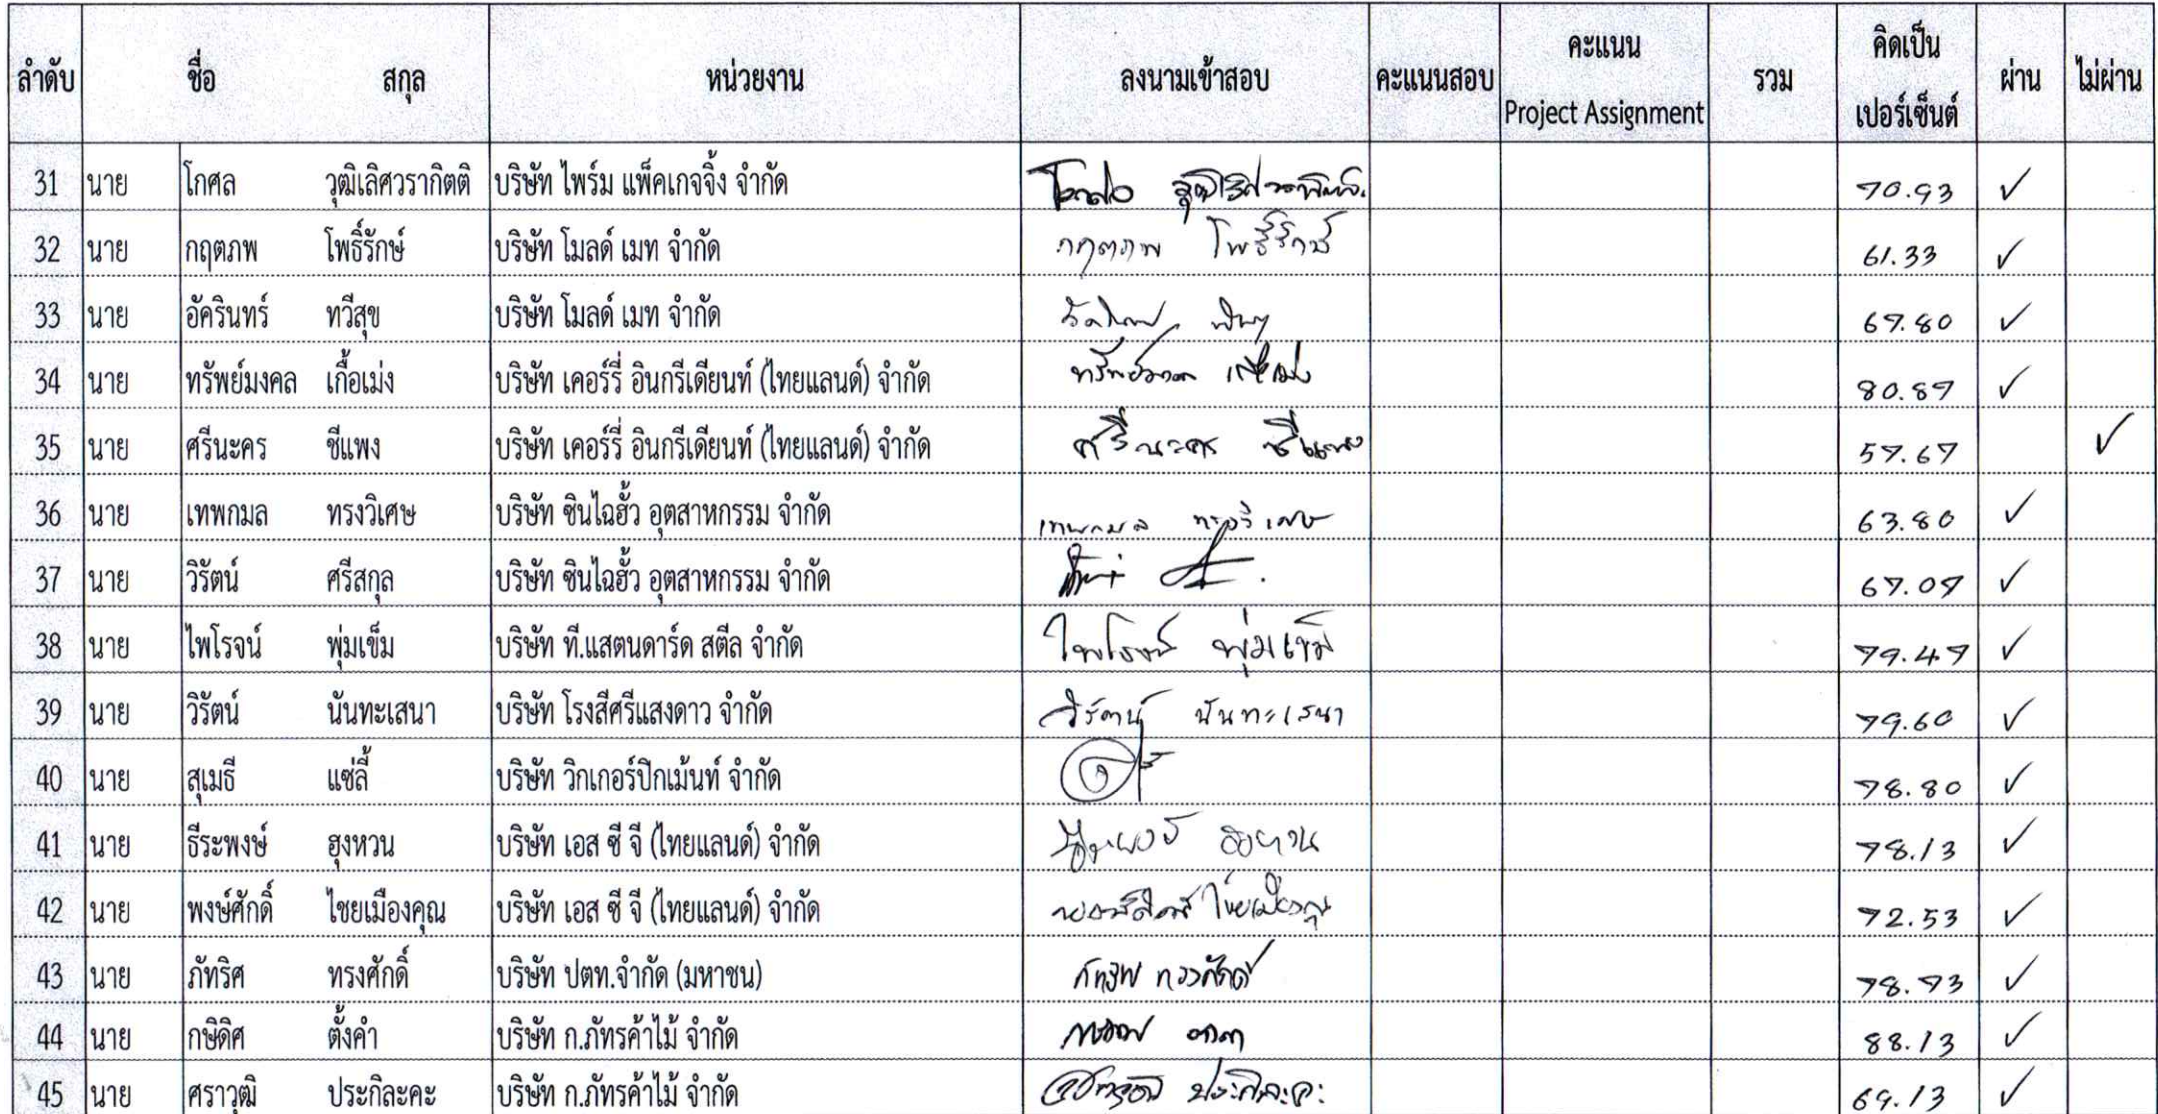 ลำดับ ชื่อ สกุล หน่วยงาน ลงนามเข้าสอบ คะแนนสอบ คะแนน Project Assignment รวม คิดเป็น เปอร์เซ็นต์ ผ่าน ไม่ผ่าน
31 นาย โกศล วุฒิเลิศวรากิตติ บริษัท ไพร์ม แพ็คเกจจิ้ง จำกัด 70.93 ✓
32 นาย กฤตภพ โพธิ์รักษ์ บริษัท โมลด์ เมท จำกัด กฤตภพ โพธิ์รักษ์ 61.33 ✓
33 นาย อัครินทร์ ทวีสุข บริษัท โมลด์ เมท จำกัด 67.80 ✓
34 นาย ทรัพย์มงคล เกื้อเม่ง บริษัท เคอร์รี่ อินกรีเดียนท์ (ไทยแลนด์) จำกัด 80.87 ✓
35 นาย ศรีนะคร ชีแพง บริษัท เคอร์รี่ อินกรีเดียนท์ (ไทยแลนด์) จำกัด ศรีนะคร ชีแพง 57.67 ✓
36 นาย เทพกมล ทรงวิเศษ บริษัท ซินไฉฮั้ว อุตสาหกรรม จำกัด เทพกมล ทรงวิเศษ 63.80 ✓
37 นาย วิรัตน์ ศรีสกุล บริษัท ซินไฉฮั้ว อุตสาหกรรม จำกัด 67.07 ✓
38 นาย ไพโรจน์ พุ่มเข็ม บริษัท ที.แสตนดาร์ด สตีล จำกัด ไพโรจน์ พุ่มเข็ม 79.47 ✓
39 นาย วิรัตน์ นันทะเสนา บริษัท โรงสีศรีแสงดาว จำกัด วิรัตน์ นันทะเสนา 79.60 ✓
40 นาย สุเมธี แซ่ลี้ บริษัท วิกเกอร์ปิกเม้นท์ จำกัด 78.80 ✓
41 นาย ธีระพงษ์ ฮุงหวน บริษัท เอส ซี จี (ไทยแลนด์) จำกัด 78.13 ✓
42 นาย พงษ์ศักดิ์ ไชยเมืองคุณ บริษัท เอส ซี จี (ไทยแลนด์) จำกัด พงษ์ศักดิ์ ไชยเมืองคุณ 72.53 ✓
43 นาย ภัทริศ ทรงศักดิ์ บริษัท ปตท.จำกัด (มหาชน) ภัทริศ ทรงศักดิ์ 78.73 ✓
44 นาย กษิดิศ ตั้งคำ บริษัท ก.ภัทรค้าไม้ จำกัด 88.13 ✓
45 นาย ศราวุฒิ ประกิละคะ บริษัท ก.ภัทรค้าไม้ จำกัด ศราวุฒิ ประกิละคะ 69.13 ✓